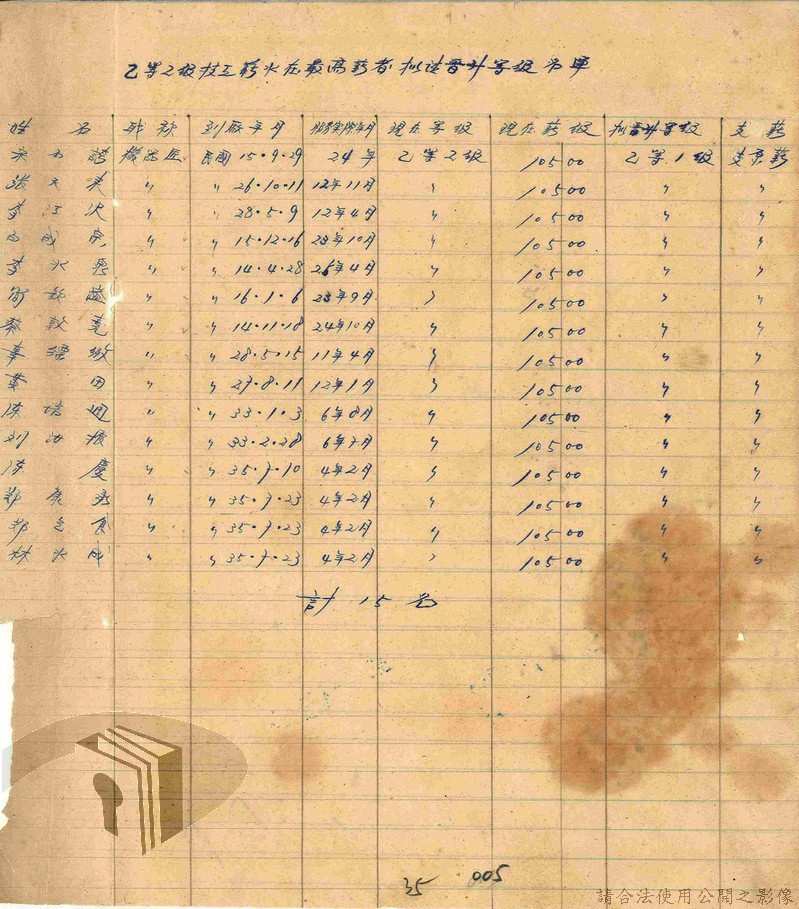 乙等2級技工薪水在最高薪者拟請晋升等級名單
姓名 职称 到廠年月 服務实际年月 現在等級 現在薪級 拟晋升等級 支薪
機器匠 民國15.9.29 24年 乙等2級 10500 乙等1級 支原薪
張天 〃 〃 26.10.11 12年11月 〃 10500 〃 〃
李江次 〃 〃 28.5.9 12年4月 〃 10500 〃 〃
白成 〃 〃 15.12.16 23年10月 〃 10500 〃 〃
李火 〃 〃 14.4.28 26年4月 〃 10500 〃 〃
〃 〃 16.1.6 23年9月 〃 10500 〃 〃
蔡 〃 〃 14.11.18 24年10月 〃 10500 〃 〃
〃 〃 28.5.15 11年4月 〃 10500 〃 〃
田 〃 〃 27.8.11 12年1月 〃 10500 〃 〃
陳 〃 〃 33.1.3 6年8月 〃 10500 〃 〃
〃 〃 33.2.28 6年7月 〃 10500 〃 〃
陳慶 〃 〃 35.7.10 4年2月 〃 10500 〃 〃
郑 〃 〃 35.7.23 4年2月 〃 10500 〃 〃
郑 〃 〃 35.7.23 4年2月 〃 10500 〃 〃
林火成 〃 〃 35.7.23 4年2月 〃 10500 〃 〃
計 15名
35 005
請合法使用公開之影像